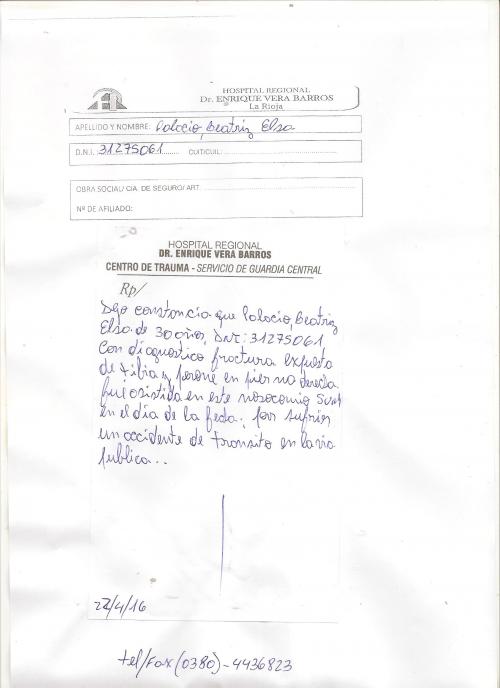 HOSPITAL REGIONAL
Dr. ENRIQUE VERA BARROS
La Rioja
APELLIDO Y NOMBRE: Palacio, Beatriz Elsa
D.N.I. 31275061 CUIT/CUIL:
OBRA SOCIAL/ CIA. DE SEGURO/ ART
Nº DE AFILIADO:
HOSPITAL REGIONAL
DR. ENRIQUE VERA BARROS
CENTRO DE TRAUMA - SERVICIO DE GUARDIA CENTRAL
Rp/
Dejo constancia que Palacio, Beatriz
Elsa de 30 años, DNI: 31275061
Con diagnostico fractura expuesta
de tibia y peroné en pierna derecha
fue asistida en este nosocomio
en el día de la fecha, por sufrir
un accidente de transito en la via
publica...
22/4/16
tel/Fax (0380)-4436823